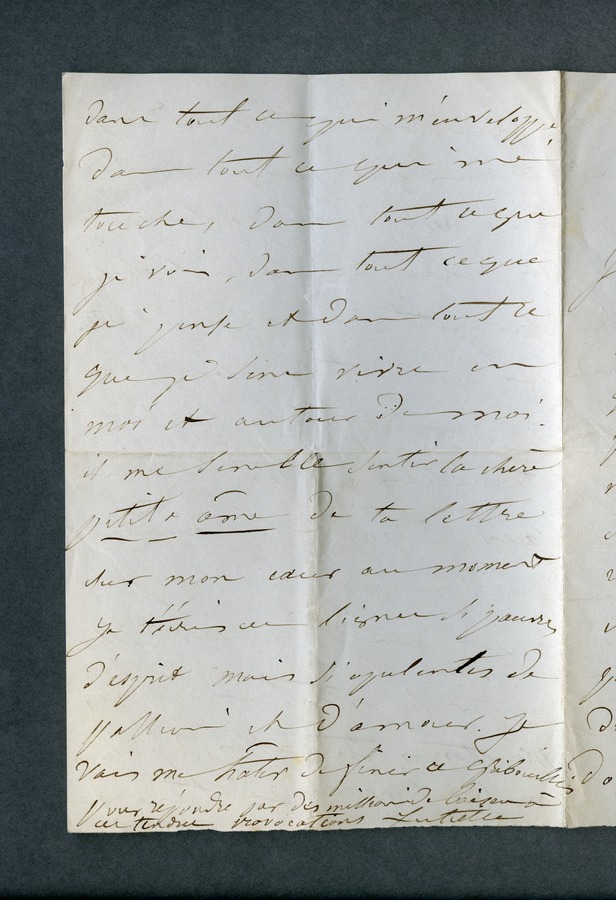 dans tout ce qui m'enveloppe
dans tout ce qui me
touche, dans tout ce que
je vois, dans tout ce que
je pense et dans tout ce
que je sens vivre en
moi et autour de moi.
il me semble sentir la chère
petite âme de ta lettre
sur mon cœur au moment
je t'écris ces lignes si pauvres
d'esprit mais si opulentes de
passion et d'amour. Je
vais me hâter de finir ce gribouillis
pour répondre par des millions de baisers à
ces tendres provocations Juliette